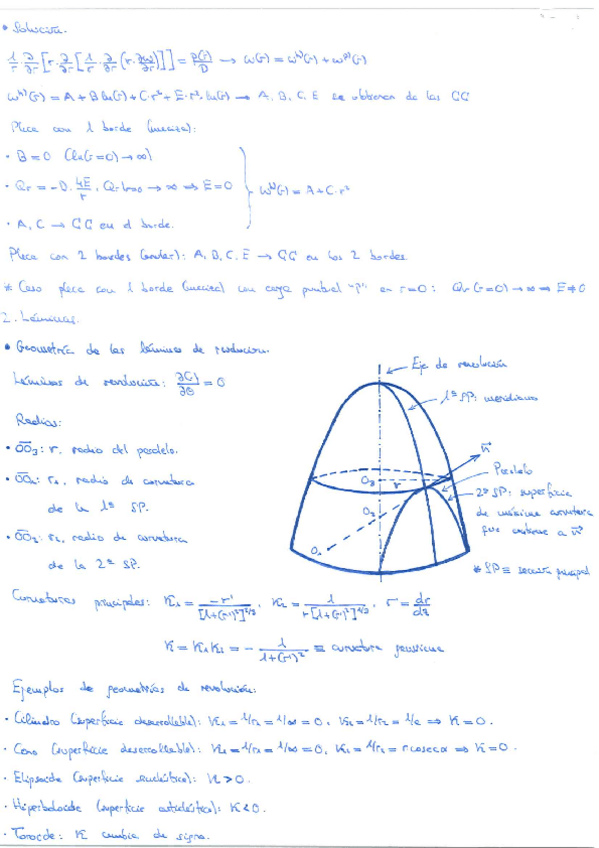 • Solución.
1/r · ∂/∂r [r · ∂/∂r [1/r · ∂/∂r (r · ∂ω/∂r)]] = p(r)/D → ω(r) = ω^h)(r) + ω^p)(r)
ω^h)(r) = A + B ln(r) + C·r² + E·r²·ln(r) → A, B, C, E se obtienen de las CC
Placa con 1 borde (maciza):
· B = 0 (ln(r=0) → ∞)
· Qr = -D · 4E/r, Qr|r=0 → ∞ ⇒ E = 0
ω^h)(r) = A + C·r²
· A, C → CC en el borde.
Placa con 2 bordes (anular): A, B, C, E → CC en los 2 bordes
* Caso placa con 1 borde (maciza) con carga puntual "P" en r=0: Qr(r=0) → ∞ ⇒ E ≠ 0
2. Láminas.
• Geometría de las láminas de revolución.
Láminas de revolución: ∂( )/∂θ = 0
Radios:
· OO₃: r, radio del paralelo.
· OO₁: r₁, radio de curvatura
de la 1ª SP.
· OO₂: r₂, radio de curvatura
de la 2ª SP.
Eje de revolución
1ª SP: meridiano
n
Paralelo
2ª SP: superficie
de máxima curvatura
que contiene a n
* SP ≡ sección principal
O₃
r
O₂
O₁
Curvaturas principales: K₁ = -r'/[1+(r')²]^3/2, K₂ = 1/r[1+(r')²]^1/2, r' = dr/dz
K = K₁K₂ = - 1/1+(r')² ≡ curvatura gaussiana
Ejemplos de geometrías de revolución:
· Cilindro (superficie desarrollable): K₁ = 1/r₁ = 1/∞ = 0, K₂ = 1/r₂ = 1/e ⇒ K = 0.
· Cono (superficie desarrollable): K₁ = 1/r₁ = 1/∞ = 0, K₂ = 1/r₂ = r cosec α ⇒ K = 0.
· Elipsoide (superficie sinclástica): K > 0.
· Hiperboloide (superficie anticlástica): K < 0.
· Toroide: K cambia de signo.